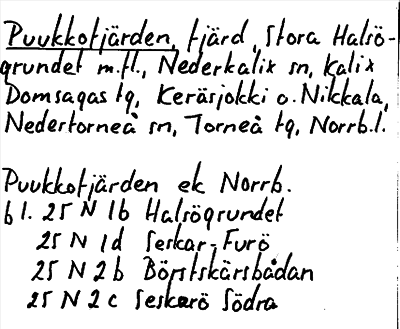 Puukkofjärden, fjärd, Stora Halsö-
grundet m.fl., Nederkalix sn, Kalix
Domsagas tg, Keräsjokki o. Nikkala,
Nedertorneå sn, Torneå tg, Norrb.l.
Puukkofjärden ek Norrb.
bl. 25 N 1b Halsögrundet
25 N 1d Seskar-Furö
25 N 2b Börstskärsbådan
25 N 2c Seskarö Södra